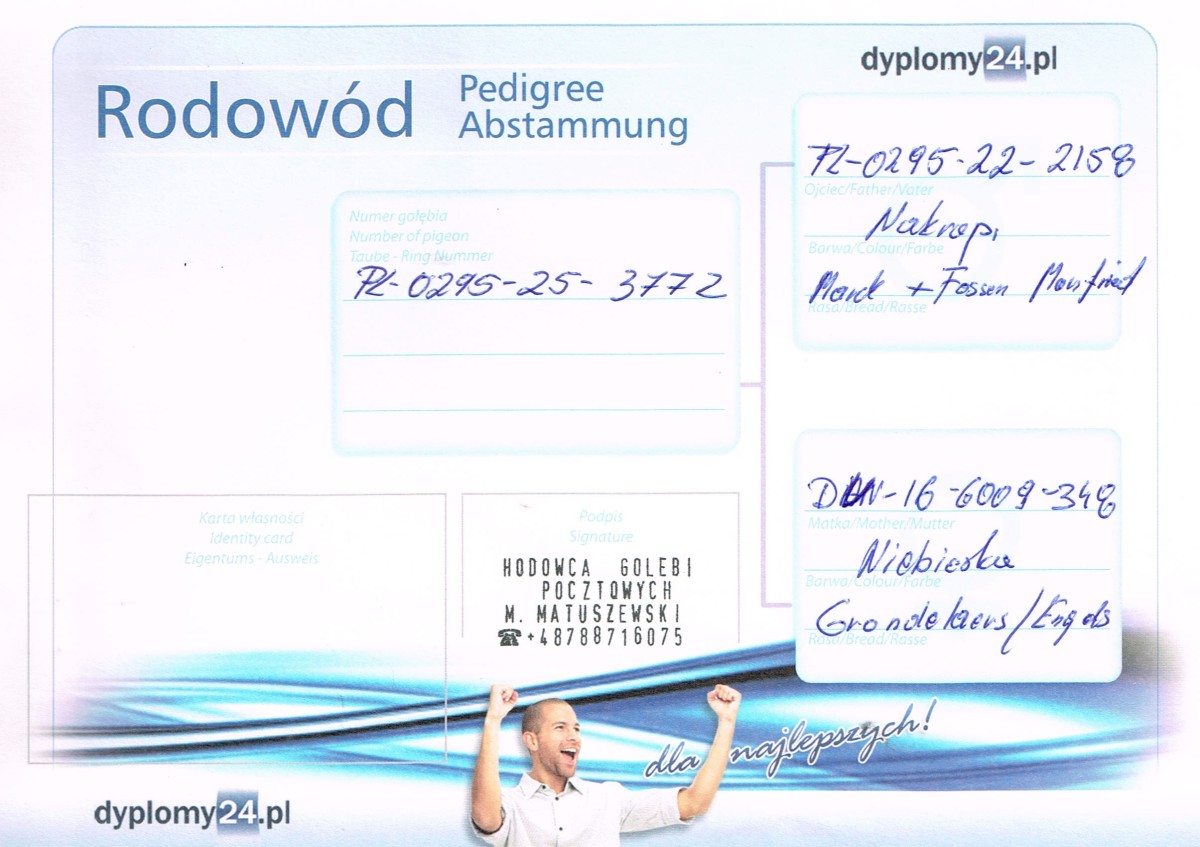 dyplomy24.pl
Rodowód
Pedigree
Abstammung
Numer gołębia
Number of pigeon
Taube - Ring Nummer
PL-0295-25- 3772
PL-0295-22-2158
Ojciec/Father/Vater
Nakrapi
Barwa/Colour/Farbe
+ Fossen Manfried
Rasa/Bread/Rasse
-16-6009-348
Matka/Mother/Mutter
Niebieska
Barwa/Colour/Farbe
Grondelaers/Engels
Rasa/Bread/Rasse
Karta własności
Identity card
Eigentums - Ausweis
Podpis
Signature
HODOWCA GOLEBI
POCZTOWYCH
M. MATUSZEWSKI
☎+48788716075
dla najlepszych!
dyplomy24.pl